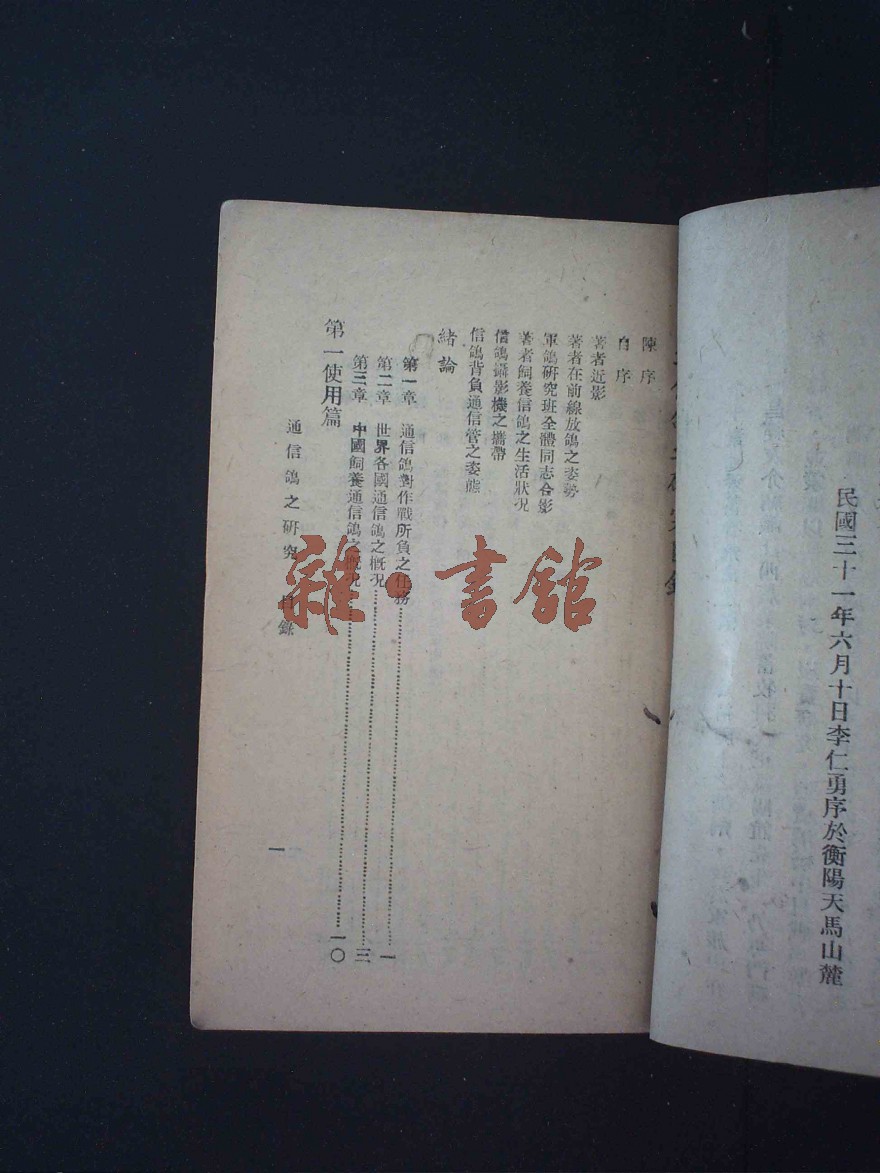 民國三十一年六月十日李仁勇序於衡陽天馬山麓
陳序
自序
著者近影
著者在前線放鴿之姿勢
軍鴿研究班全體同志合影
著者飼養信鴿之生活狀况
信鴿攝影機之攜帶
信鴿背負通信管之姿態
緒論
第一章 通信鴿對作戰所負之任務 一
第二章 世界各國通信鴿之概况 三
第三章 中國飼養通信鴿之概况 一〇
第一使用篇
通信鴿之研究 目錄
一
雜·書館